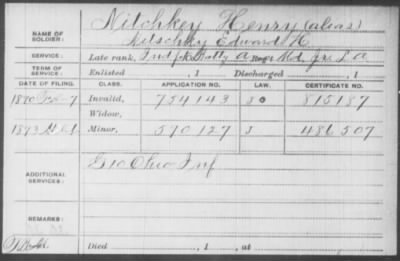 Nitchkey Henry (alias)
NAME OF SOLDIER: Nitschky Edward H.
SERVICE: Late rank, Batty A Reg't Md. Jr. L A
TERM OF SERVICE: Enlisted , 1 Discharged , 1
DATE OF FILING. CLASS. APPLICATION NO. LAW. CERTIFICATE NO.
1890 7 Invalid, 754143 815187
Widow,
1893 Minor, 590127 486507
ADDITIONAL SERVICES: G 10 Ohio Inf
REMARKS:
Died , 1 , at